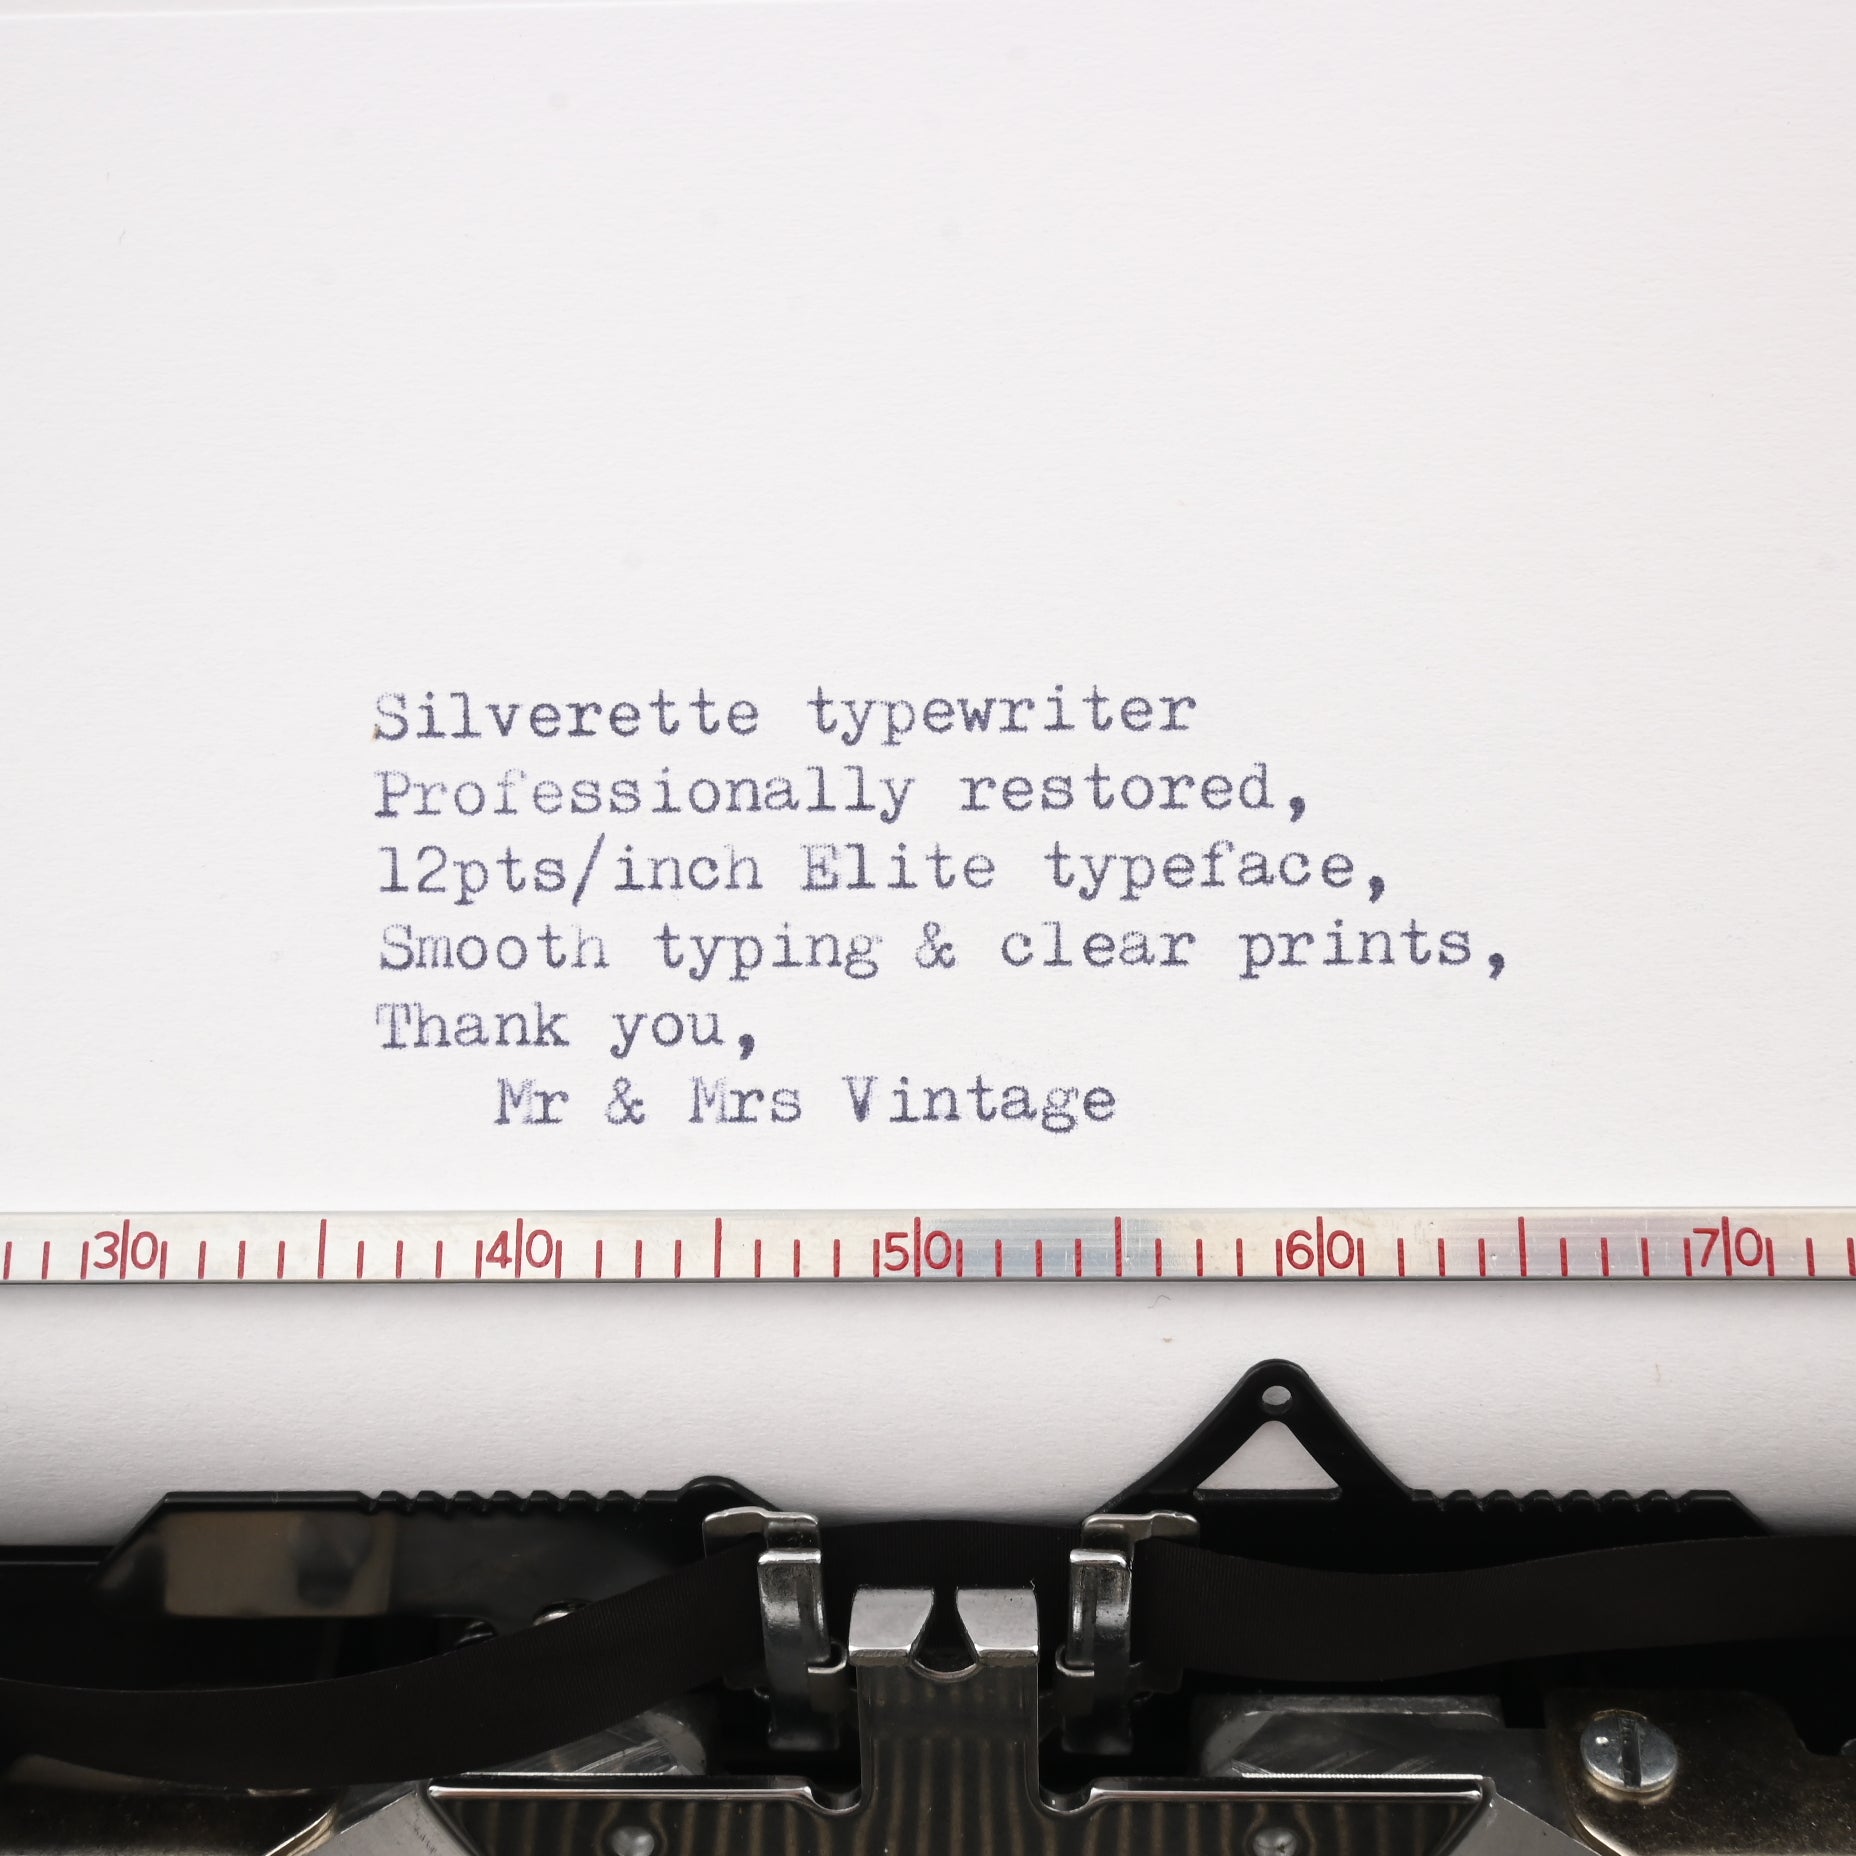 Silverette typewriter
Professionally restored,
12pts/inch Elite typeface,
Smooth typing & clear prints,
Thank you,
Mr & Mrs Vintage
30 40 50 60 70